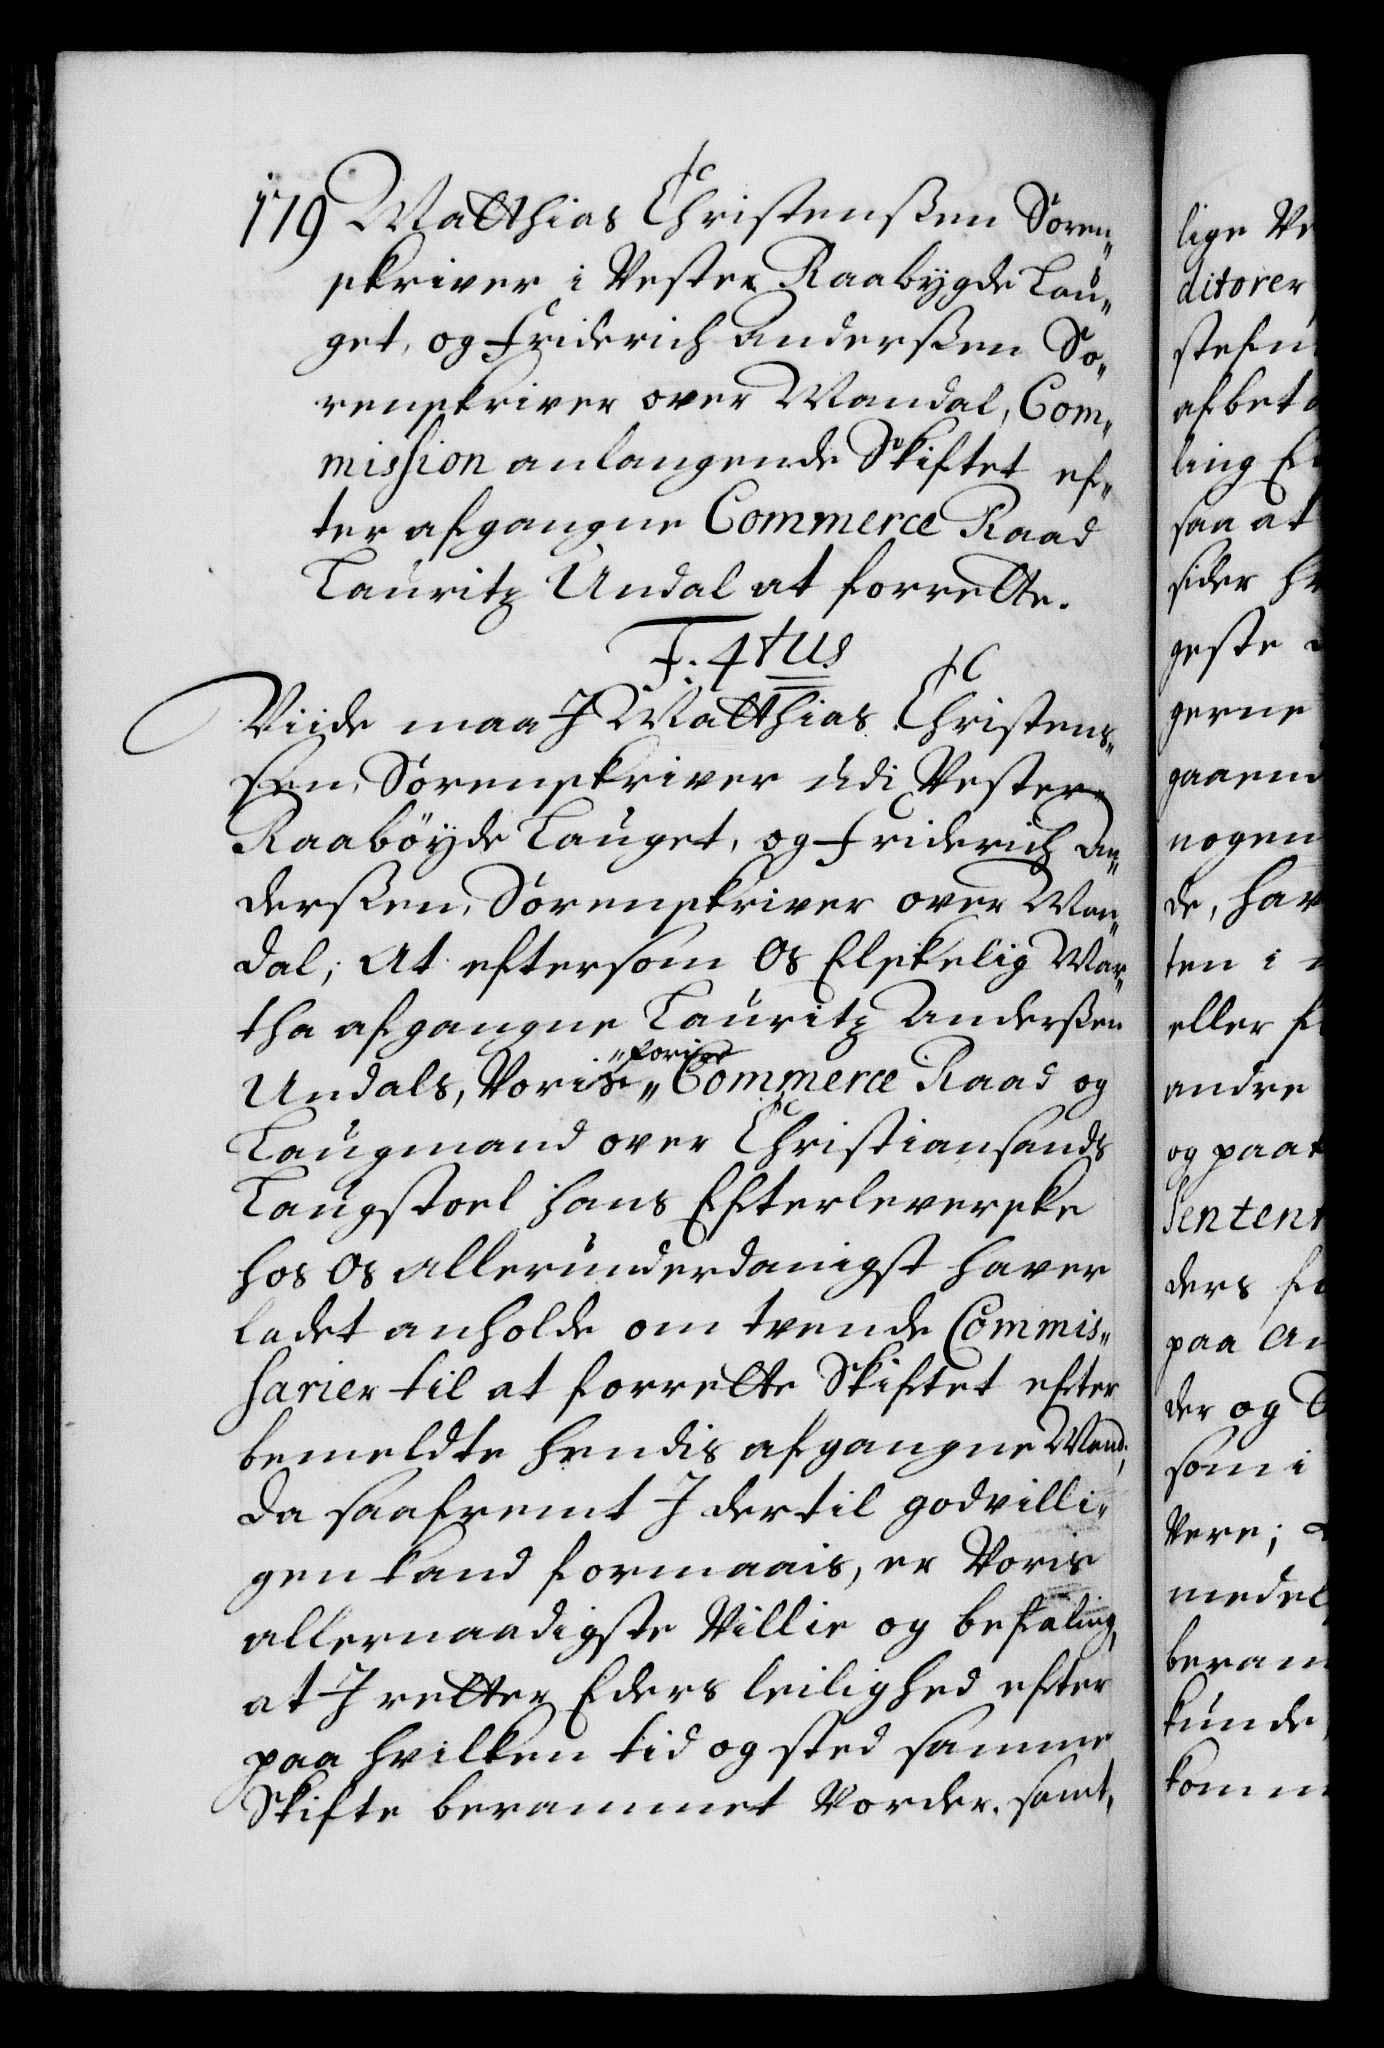 179 Matthias Christenßen Soren„
skriver i Vester Raabygde Lau„
get, og Friderich Anderßen So„
renskriver over Mandal, Com„
mission anlangende Skiftet ef„
ter afgangne Commerce Raad
Lauritz Undal at forrette.
F. 4tus
Viide maa I Matthias Christens„
sen, Sorenskriver udi Vester„
Raabøyde Lauget, og Friderich An„
derßen, Sorenskriver over Man„
dal; At eftersom Os Elskelig Mar„
tha afgangne Lauritz Anderßen
Undals, Voris „forige „ Commerce Raad og
Laugmand over Christiansands
Laugstoel hans Efterleverske
hos Os allerunderdanigst haver
ladet anholde om tvende Commis„
sarier til at forrette Skiftet efter
bemeldte hendis afgangne Mand;
Da saafremt I dertil godvilli„
gen kand formaais, er Voris
allernaadigste Villie og befaling,
at I retter Eders leilighed efter
paa hvilken tid og sted samme
Skifte berammet Vorder, samt,
lige Ve
ditorer
stefn
afbeta
ling E
saa at
sider h
geste
gerne
gaaen
nogen
de, hav
ten i
eller f
andre
og paat
Senten
ders f
paa An
der og
som i
Vere;
medel
beram
kunde
komm